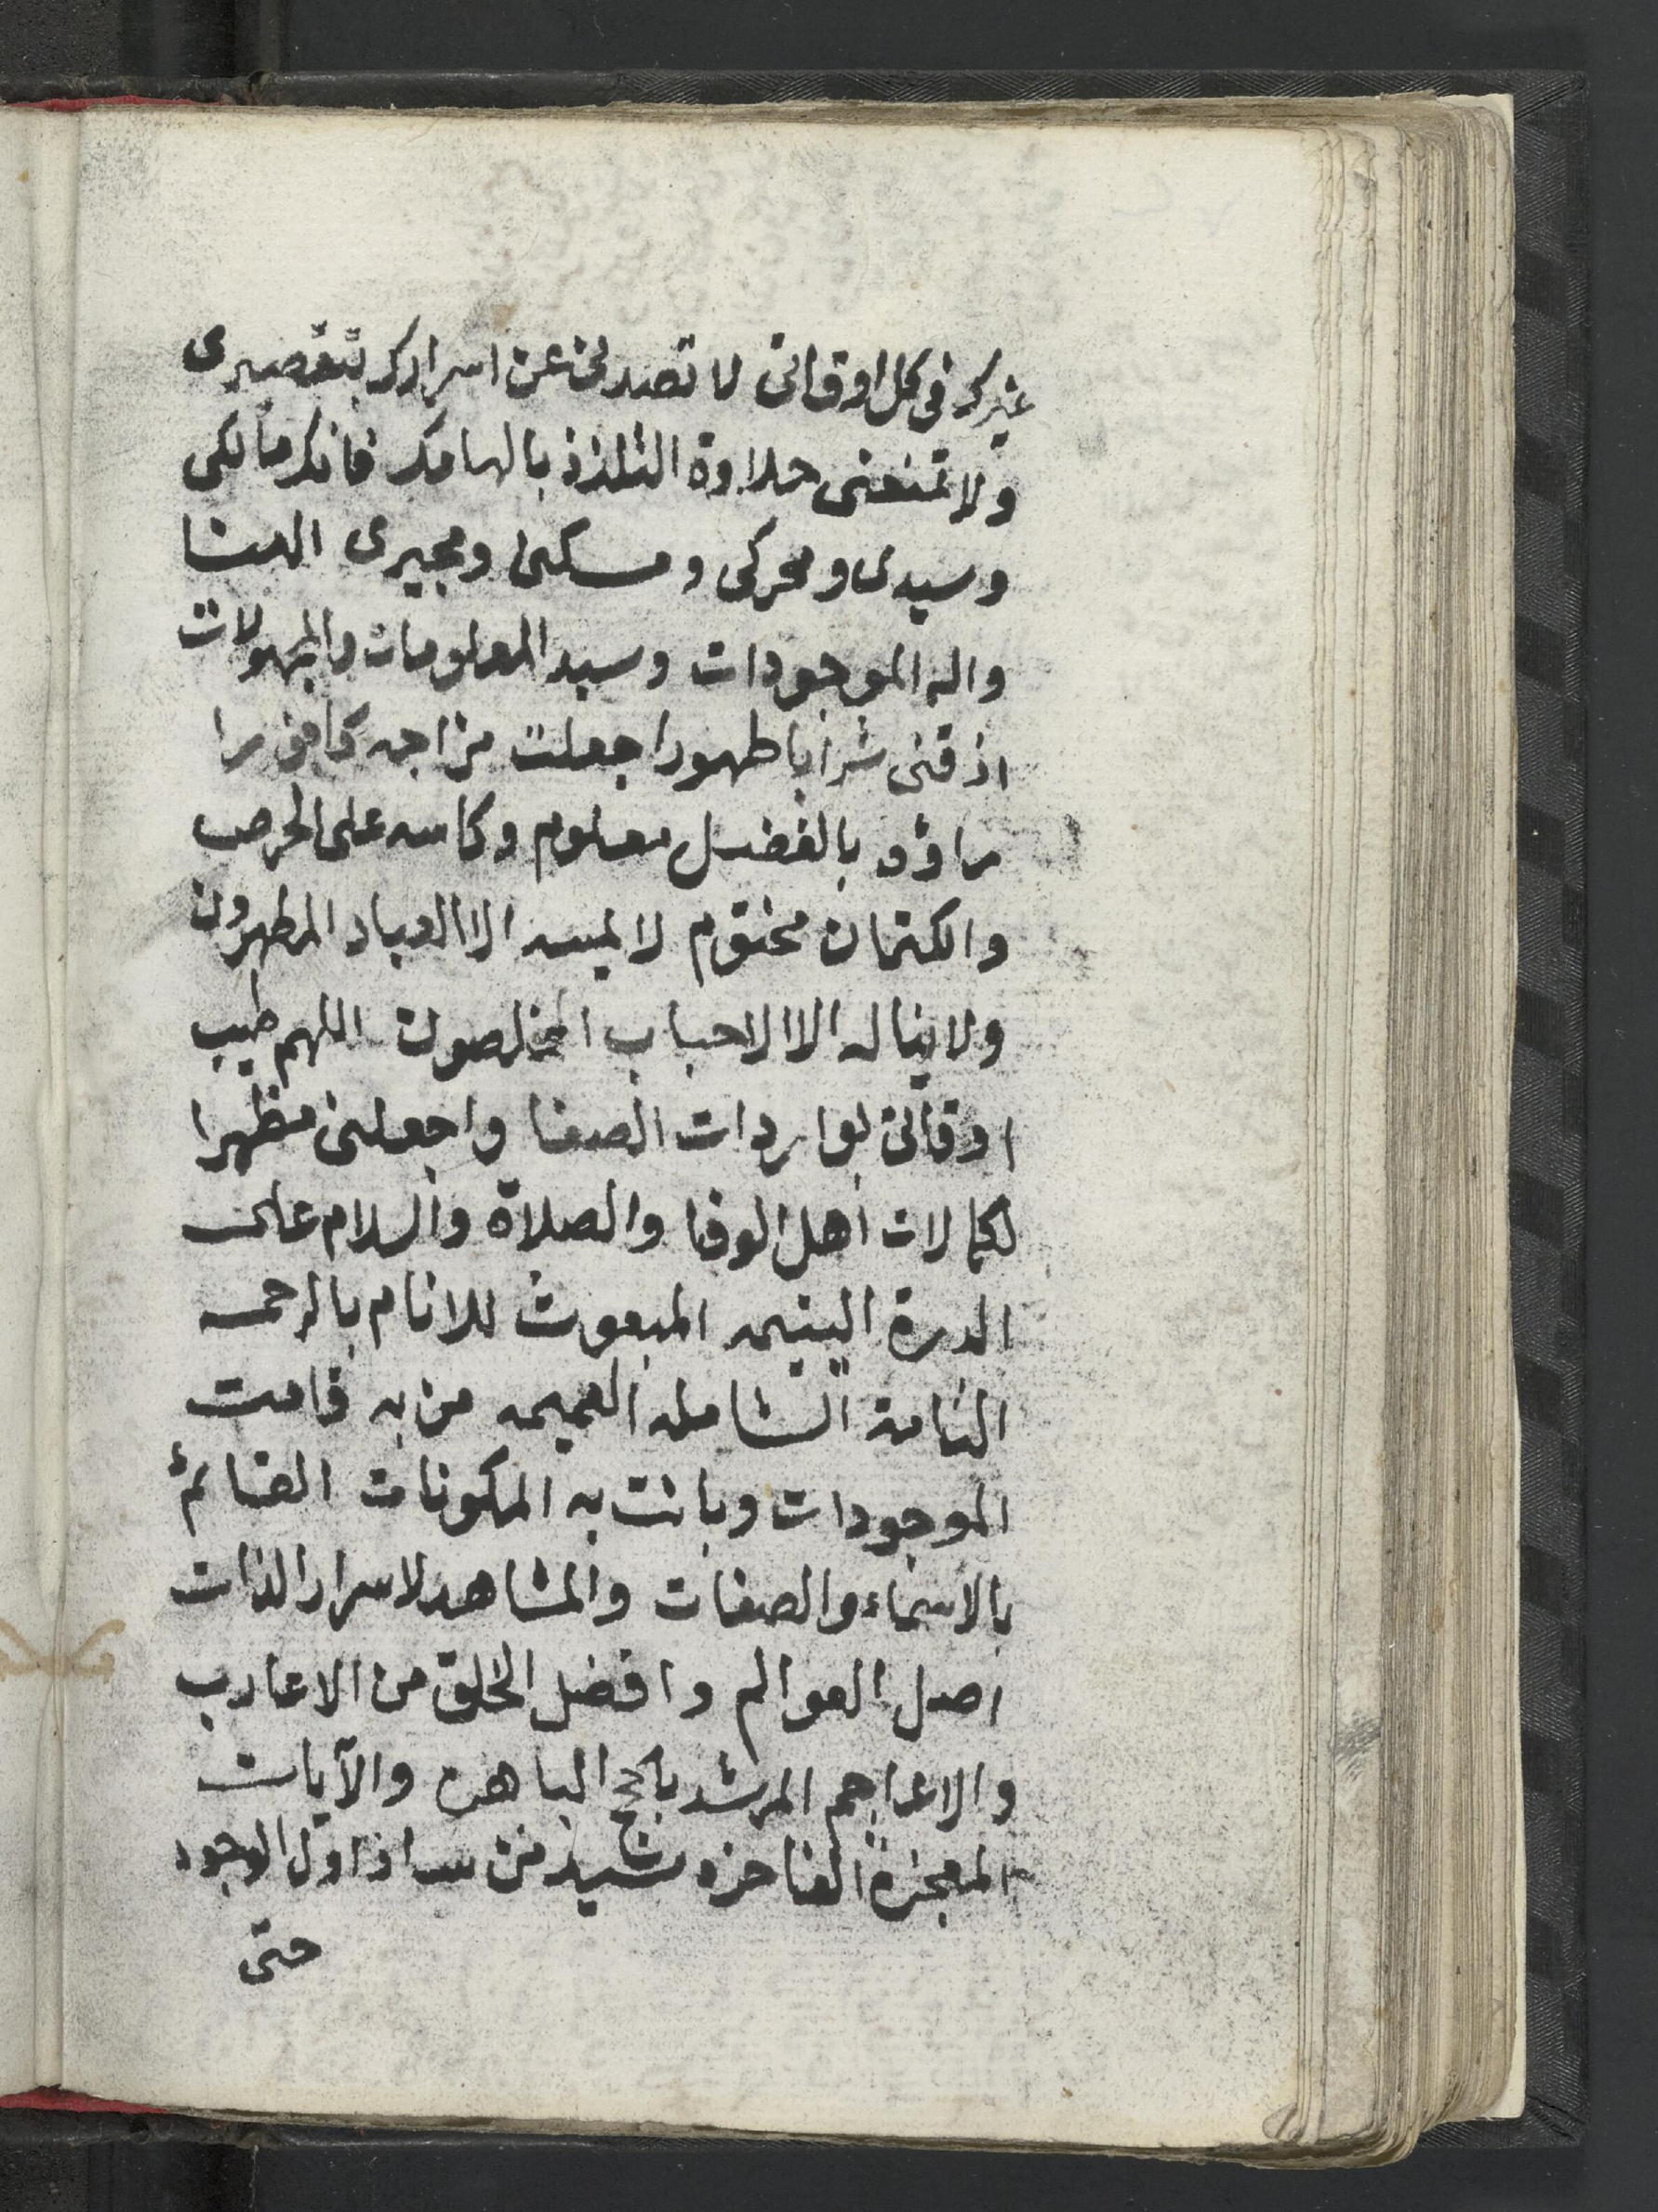 غيرك في كل اوقاتى لا تصدنى عن اسرارك بتقصيرى
ولا تمنعنى حلاوة التلذذ بالهامك فانك مالكى
وسيدى ومحركى ومسكنى ومجيرى الهنا
واله الموجودات وسيد المعلومات والمجهولات
اذقنى شرابا طهورا جعلت مزاجه كافورا
ماؤه بالفضل معلوم وكاسه على الحرص
والكتمان مختوم لا يمسه الا العباد المطهرون
ولا يناله الا الاحباب المخلصون اللهم طيب
اوقاتى بواردات الصفا واجعلنى مظهرا
لكمالات اهل الوفا والصلاة والسلام على
الدرة اليتيمه المبعوث للانام بالرحمه
التامة الشامله العميمه من به قامت
الموجودات وبانت به المكونات القائم
بالاسماء والصفات والمشاهد لاسرار الذات
اصل العوالم وافضل الخلق من الاعارب
والاعاجم المرشد بالحجج الباهره والآيات
المعجزة الفاخره سيد من ساد اول الوجود
حتى